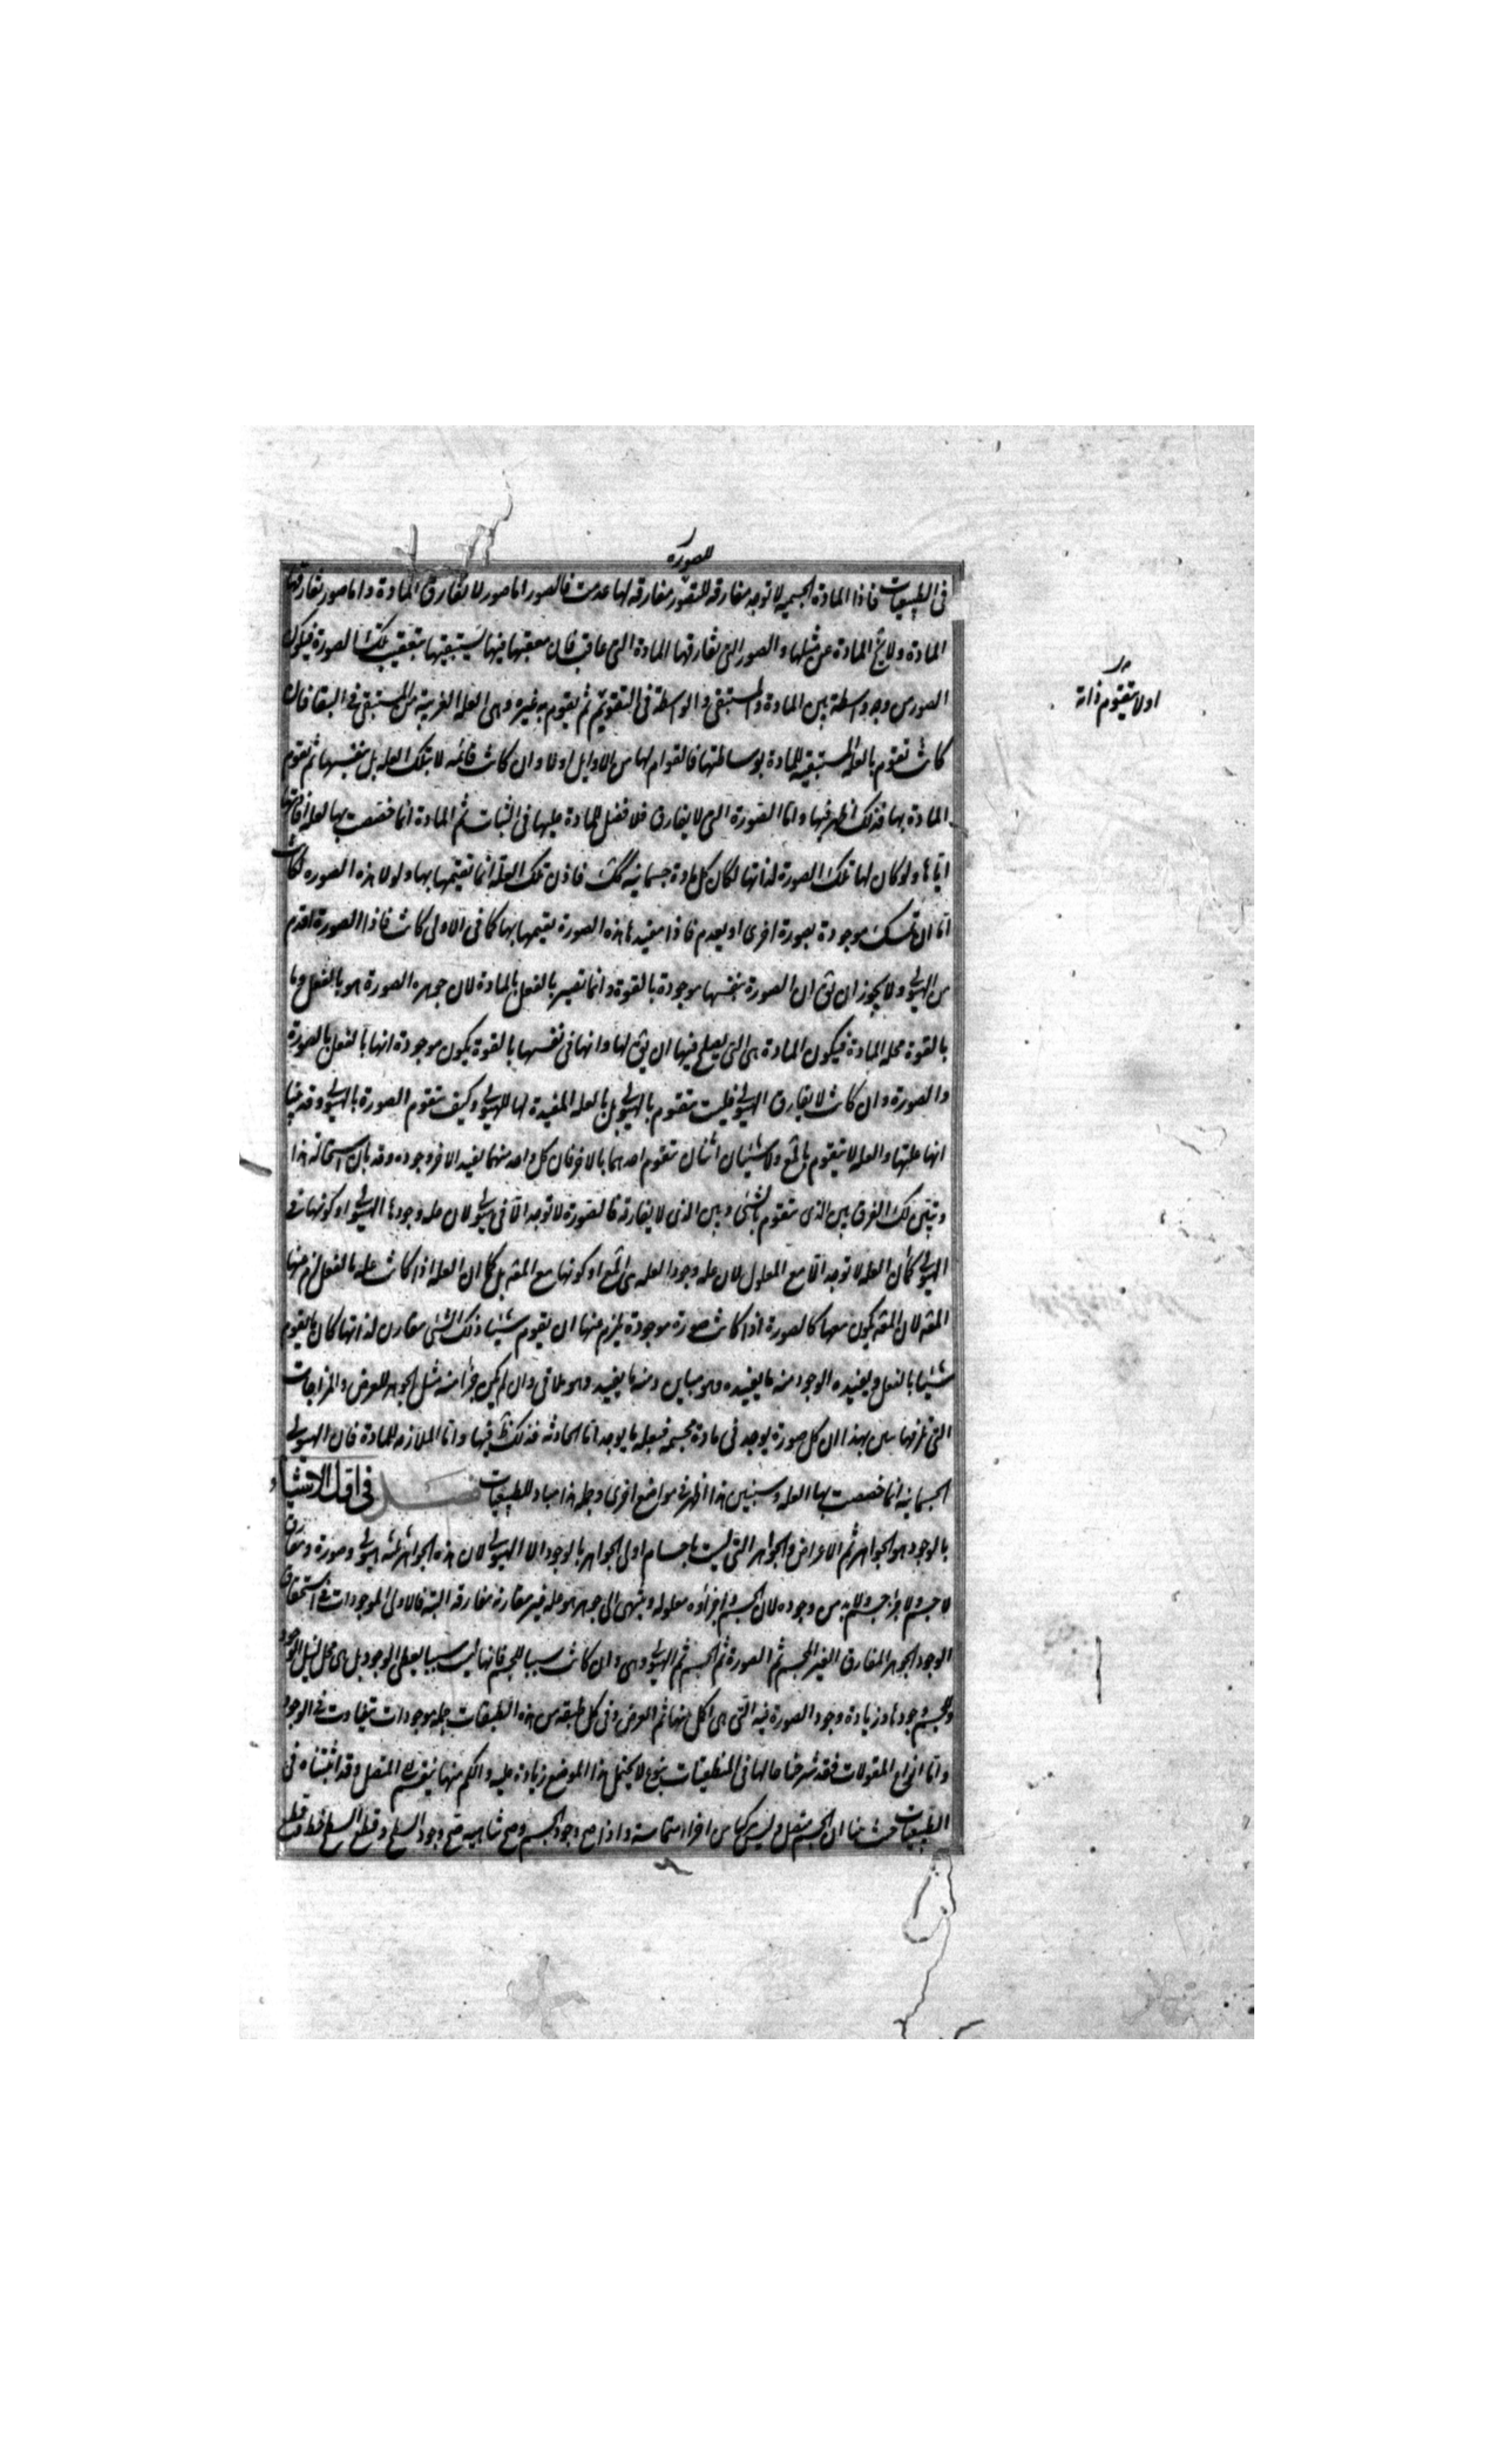 للصورة
فى الطبيعيات فاذا المادة الجسمية لا توجد مفارقة للصورة مفارقه لها عدمت فالصور اما صور لا تفارق المادة واما صور تفارقها
المادة ولا يخ المادة عن مثلها والصور التى تفارقها المادة الى عاقب فان معقبها فيها يستبقيها بتعقيب تلك الصورة فيكون
الصور من وجه واسطة بين المادة والمستبقى والواسطة فى التقويم ثم يقوم به غيره وهى العلة القريبة من المستبقى فى البقا فان
اولا يتقوم ذاته
كانت تقوم بالعلة المستبقيه للمادة بوساطتها فالقوام لها من الاوايل اولا وان كانت قائمه لا بتلك العله بل بنفسها ثم تقوم
المادة بها فذلك اظهر فيها واما الصورة التى لا يفارق فلا فضل للمادة عليها فى الثبات ثم المادة انما خصصت بها لعلة افادتها
اياها ولو كان لها تلك الصورة لذاتها لكان كل مادة جسمانيه كك فاذن تلك العلة انما تقيمها بها ولولا هذه الصوره لكانت
اما ان تمسك موجودة بصورة اخرى او يعدم فاذا مفيدها هذه الصورة يقيمها بها كما فى الاولى كانت فاذا الصورة اقدم
من الهيولى ولا يجوز ان يق ان الصورة بنفسها موجودة بالقوة وانما تصير بالفعل بالمادة لان جوهر الصورة هو بالفعل وما
بالقوة محله المادة فيكون المادة هى التى يصلح فيها ان يق لها وانها فى نفسها بالقوة يكون موجودة انها بالفعل بالصورة
والصورة وان كانت لا يفارق الهيولى فليست تتقوم بالهيولى بل بالعله المفيدة لها للهيولى وكيف تتقوم الصورة بالهيولى وقد بينا
انها علتها والعله لا يتقوم بالمع ولا شيئان اثنان تتقوم احدهما بالاخر فان كل واحد منهما يفيد الاخر وجوده وقد بان استحالة هذا
وتبين لك الفرق بين الذى يتقوم بالشئ وبين الذى لا يفارقه فالصورة لا توجد الا فى هيولى لا ان عله وجودها الهيولى او كونها فى
الهيولى كما ان العله لا توجد الا مع المعلول لا ان عله وجود العله هى المع او كونها مع المعه بل كما ان العله اذا كانت عله بالفعل لزم عنها
المعه لان المعه يكون معها كالصورة اذا كانت صورة موجودة يلزم عنها ان يقوم شيئا ذلك الشئ مقارن لذاتها كان ما يقوم
شيئا بالفعل ويفيده الوجود منه ما يفيده وهو مباين ومنه ما يفيد وهو ملاقى وان لم يكن جزءا منه مثل الجوهر للعرض والمزاجات
التى تلزمها بين بهذا ان كل صورة يوجد فى مادة مجسمه فبعله ما يوجد اما الحادثه فذلك ظ فيها واما الملازمه للمادة فان الهيولى
الجسمانيه انما خصصت بها العله وسنبين هذا اظهر فى مواضع اخرى وجمله هذا مباد للطبيعيات فصل فى اقل الاشياء
بالوجود هو الجواهر ثم الاعراض والجواهر التى ليست باجسام اولى الجواهر بالوجود الا الهيولى لان هذه الجواهر ثلثه هيولى وصورة ومفارق
لا جسم ولا جزء جسم ولا بد من وجوده لان الجسم واجزاوه معلوله وينتهى الى جوهر هو عله غير مقارنة مفارقه البتة فالاولى الموجودات فى استحقاق
الوجود الجوهر المفارق الغير المجسم ثم الصورة ثم الجسم ثم الهيولى وهى وان كانت سببا للجسم فانها ليست سببا يعطى الوجود بل هى محل لنيل الوجود
وللجسم وجودها وزيادة وجود الصورة فيه التى هى اكمل منها ثم العرض وفى كل طبقه من هذه الطبقات جمله موجودات تتفاوت فى الوجود
واما انواع المقولات فقد شرحنا حالها فى المنطقيات بنوع لا يحتمل هذا الموضع زيادة عليه والكم منها ينقسم الى المتصل وقد اثبتناه فى
الطبيعيات حيث بينا ان الجسم متصل وليس مركبا من اجزاء متماسة واذا صح وجود الجسم وصح تناهيه صح وجود السطح وقطع السطح خط وقطع